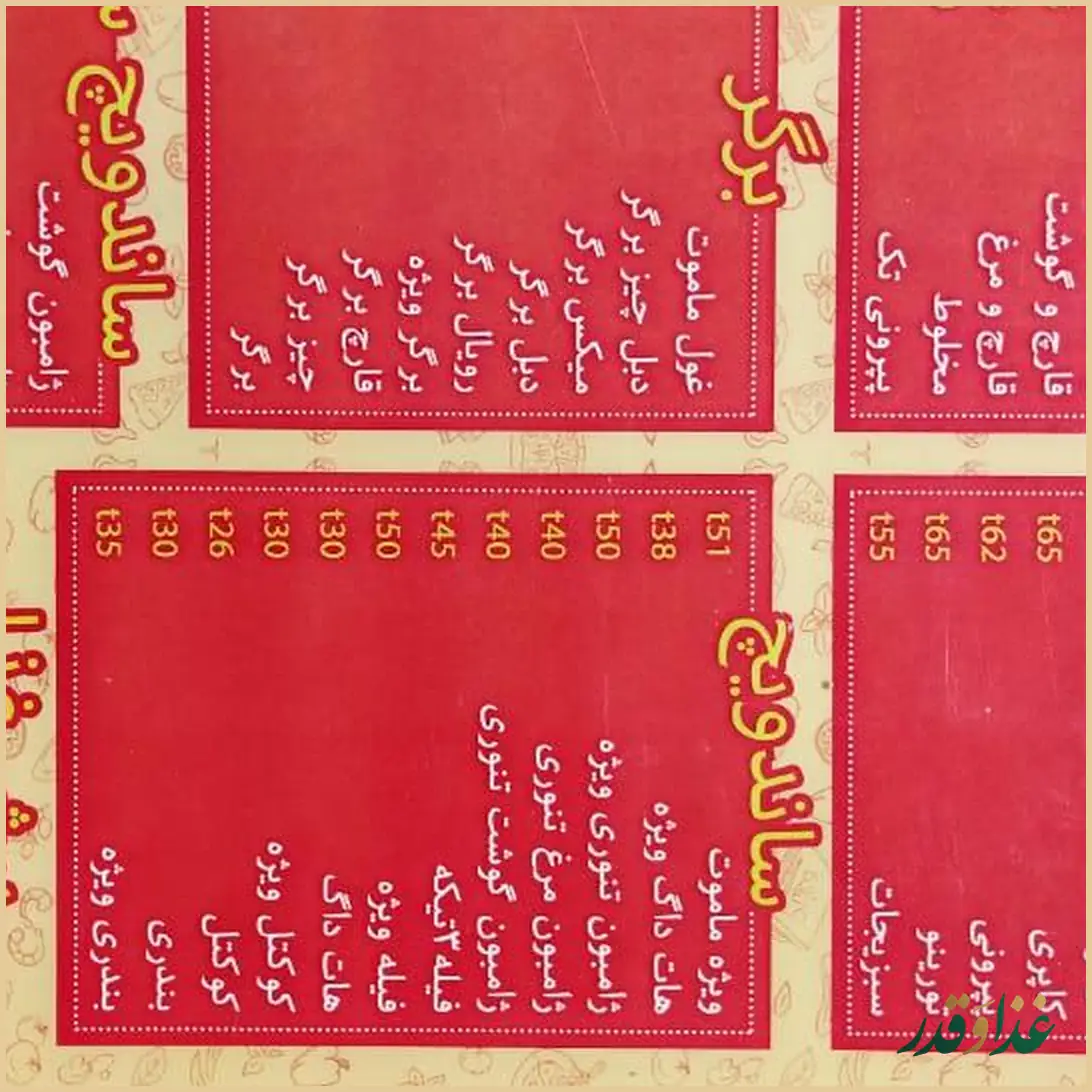 کاپری t65
پپرونی t62
یورینو t65
سبزیجات t55
ساندویچ
ویژه ماموت t51
هات داگ ویژه t38
ژامبون تنوری ویژه t50
ژامبون مرغ تنوری t40
ژامبون گوشت تنوری t40
فیله ۳تیکه t45
فیله ویژه t50
هات داگ t30
کوکتل ویژه t30
کوکتل t26
بندری t30
بندری ویژه t35
قارچ و گوشت
قارچ و مرغ
مخلوط
پپرونی تک
برگر
غول ماموت
دبل چیز برگر
میکس برگر
دبل برگر
رویال برگر
برگر ویژه
قارچ برگر
چیز برگر
برگر
ساندویچ
ژامبون گوشت
غذا و قدر